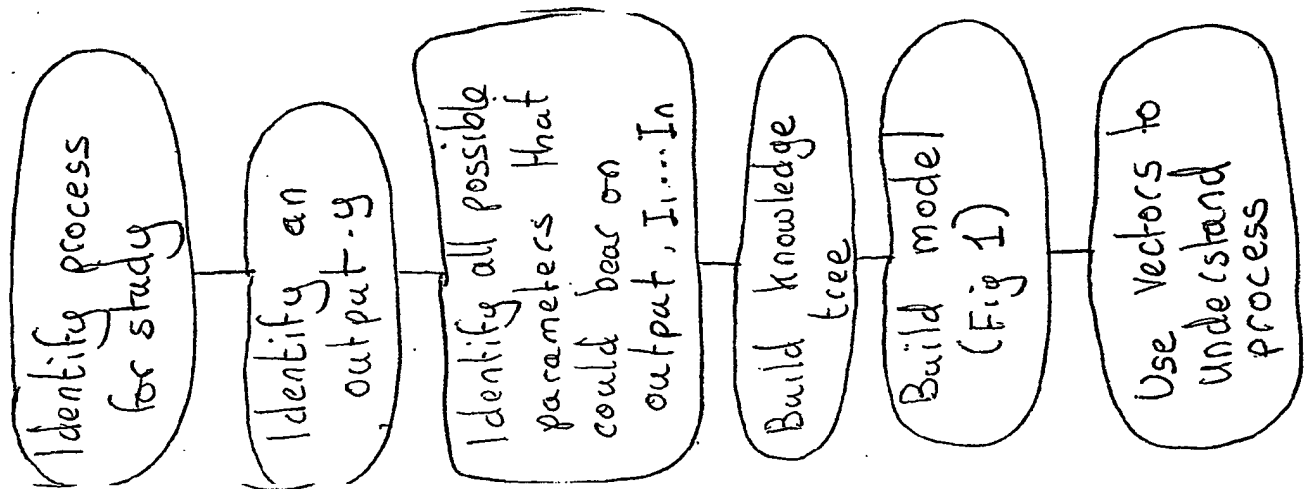 Identify process
for study
Identify an
output.y
Identify all possible
parameters that
could bear on
output, I1...In
Build knowledge
tree
Build model
(Fig 1)
Use Vectors to
Understand
process